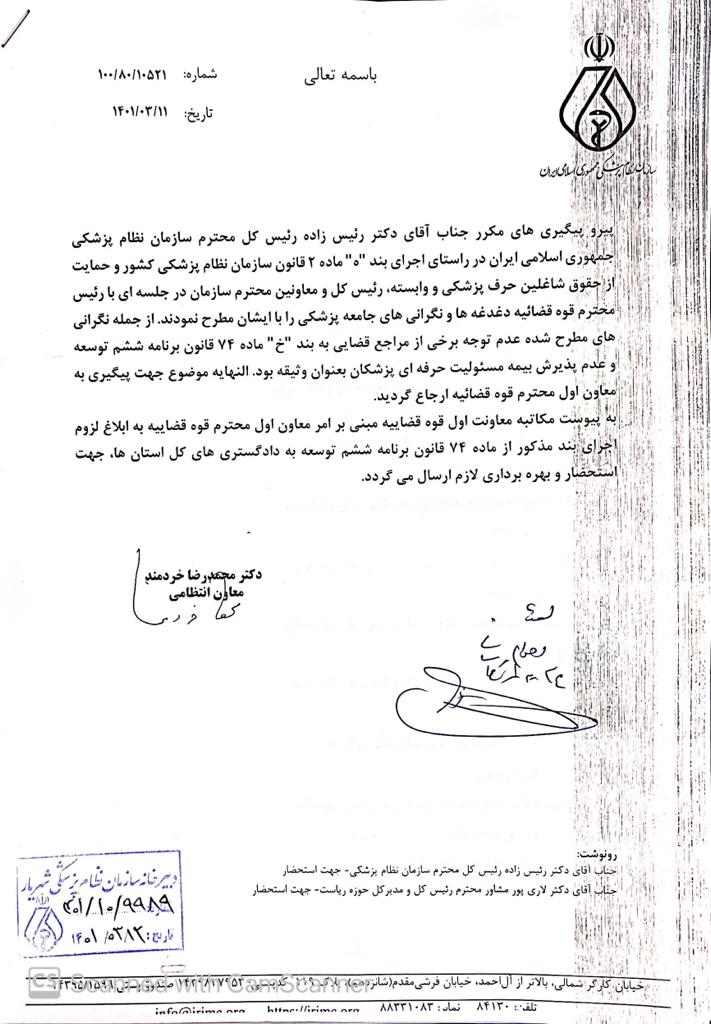 باسمه تعالی
شماره: ۱۰۰/۸۰/۱۰۵۲۱
تاریخ: ۱۴۰۱/۰۳/۱۱
سازمان نظام پزشکی جمهوری اسلامی ایران
پیرو پیگیری های مکرر جناب آقای دکتر رئیس زاده رئیس کل محترم سازمان نظام پزشکی
جمهوری اسلامی ایران در راستای اجرای بند "ه" ماده ۲ قانون سازمان نظام پزشکی کشور و حمایت
از حقوق شاغلین حرف پزشکی و وابسته، رئیس کل و معاونین محترم سازمان در جلسه ای با رئیس
محترم قوه قضائیه دغدغه ها و نگرانی های جامعه پزشکی را با ایشان مطرح نمودند. از جمله نگرانی
های مطرح شده عدم توجه برخی از مراجع قضایی به بند "خ" ماده ۷۴ قانون برنامه ششم توسعه
و عدم پذیرش بیمه مسئولیت حرفه ای پزشکان بعنوان وثیقه بود. النهایه موضوع جهت پیگیری به
معاون اول محترم قوه قضائیه ارجاع گردید.
به پیوست مکاتبه معاونت اول قوه قضاییه مبنی بر امر معاون اول محترم قوه قضاییه به ابلاغ لزوم
اجرای بند مذکور از ماده ۷۴ قانون برنامه ششم توسعه به دادگستری های کل استان ها، جهت
استحضار و بهره برداری لازم ارسال می گردد.
دکتر محمدرضا خردمند
معاون انتظامی
رونوشت:
جناب آقای دکتر رئیس زاده رئیس کل محترم سازمان نظام پزشکی- جهت استحضار
جناب آقای دکتر لاری پور مشاور محترم رئیس کل و مدیرکل حوزه ریاست- جهت استحضار
دبیرخانه سازمان نظام پزشکی شهریار
۴۰۱/۱۰/۹۹۸۹
تاریخ: ۱۴۰۱/۰۳/۱۲
خیابان کارگر شمالی، بالاتر از آل‌احمد، خیابان فرشی‌مقدم(شانزدهم)، پلاک ۱۱۹ کدپستی ۱۴۳۹/۱۷۹۵۳ صندوق پستی ۱۴۳۹۵/۱۵۹۹
تلفن: ۸۴۱۳۰ نمابر: ۸۸۳۳۱۰۸۳ https://irimc.org info@irimc.org
CS Scanned with CamScanner